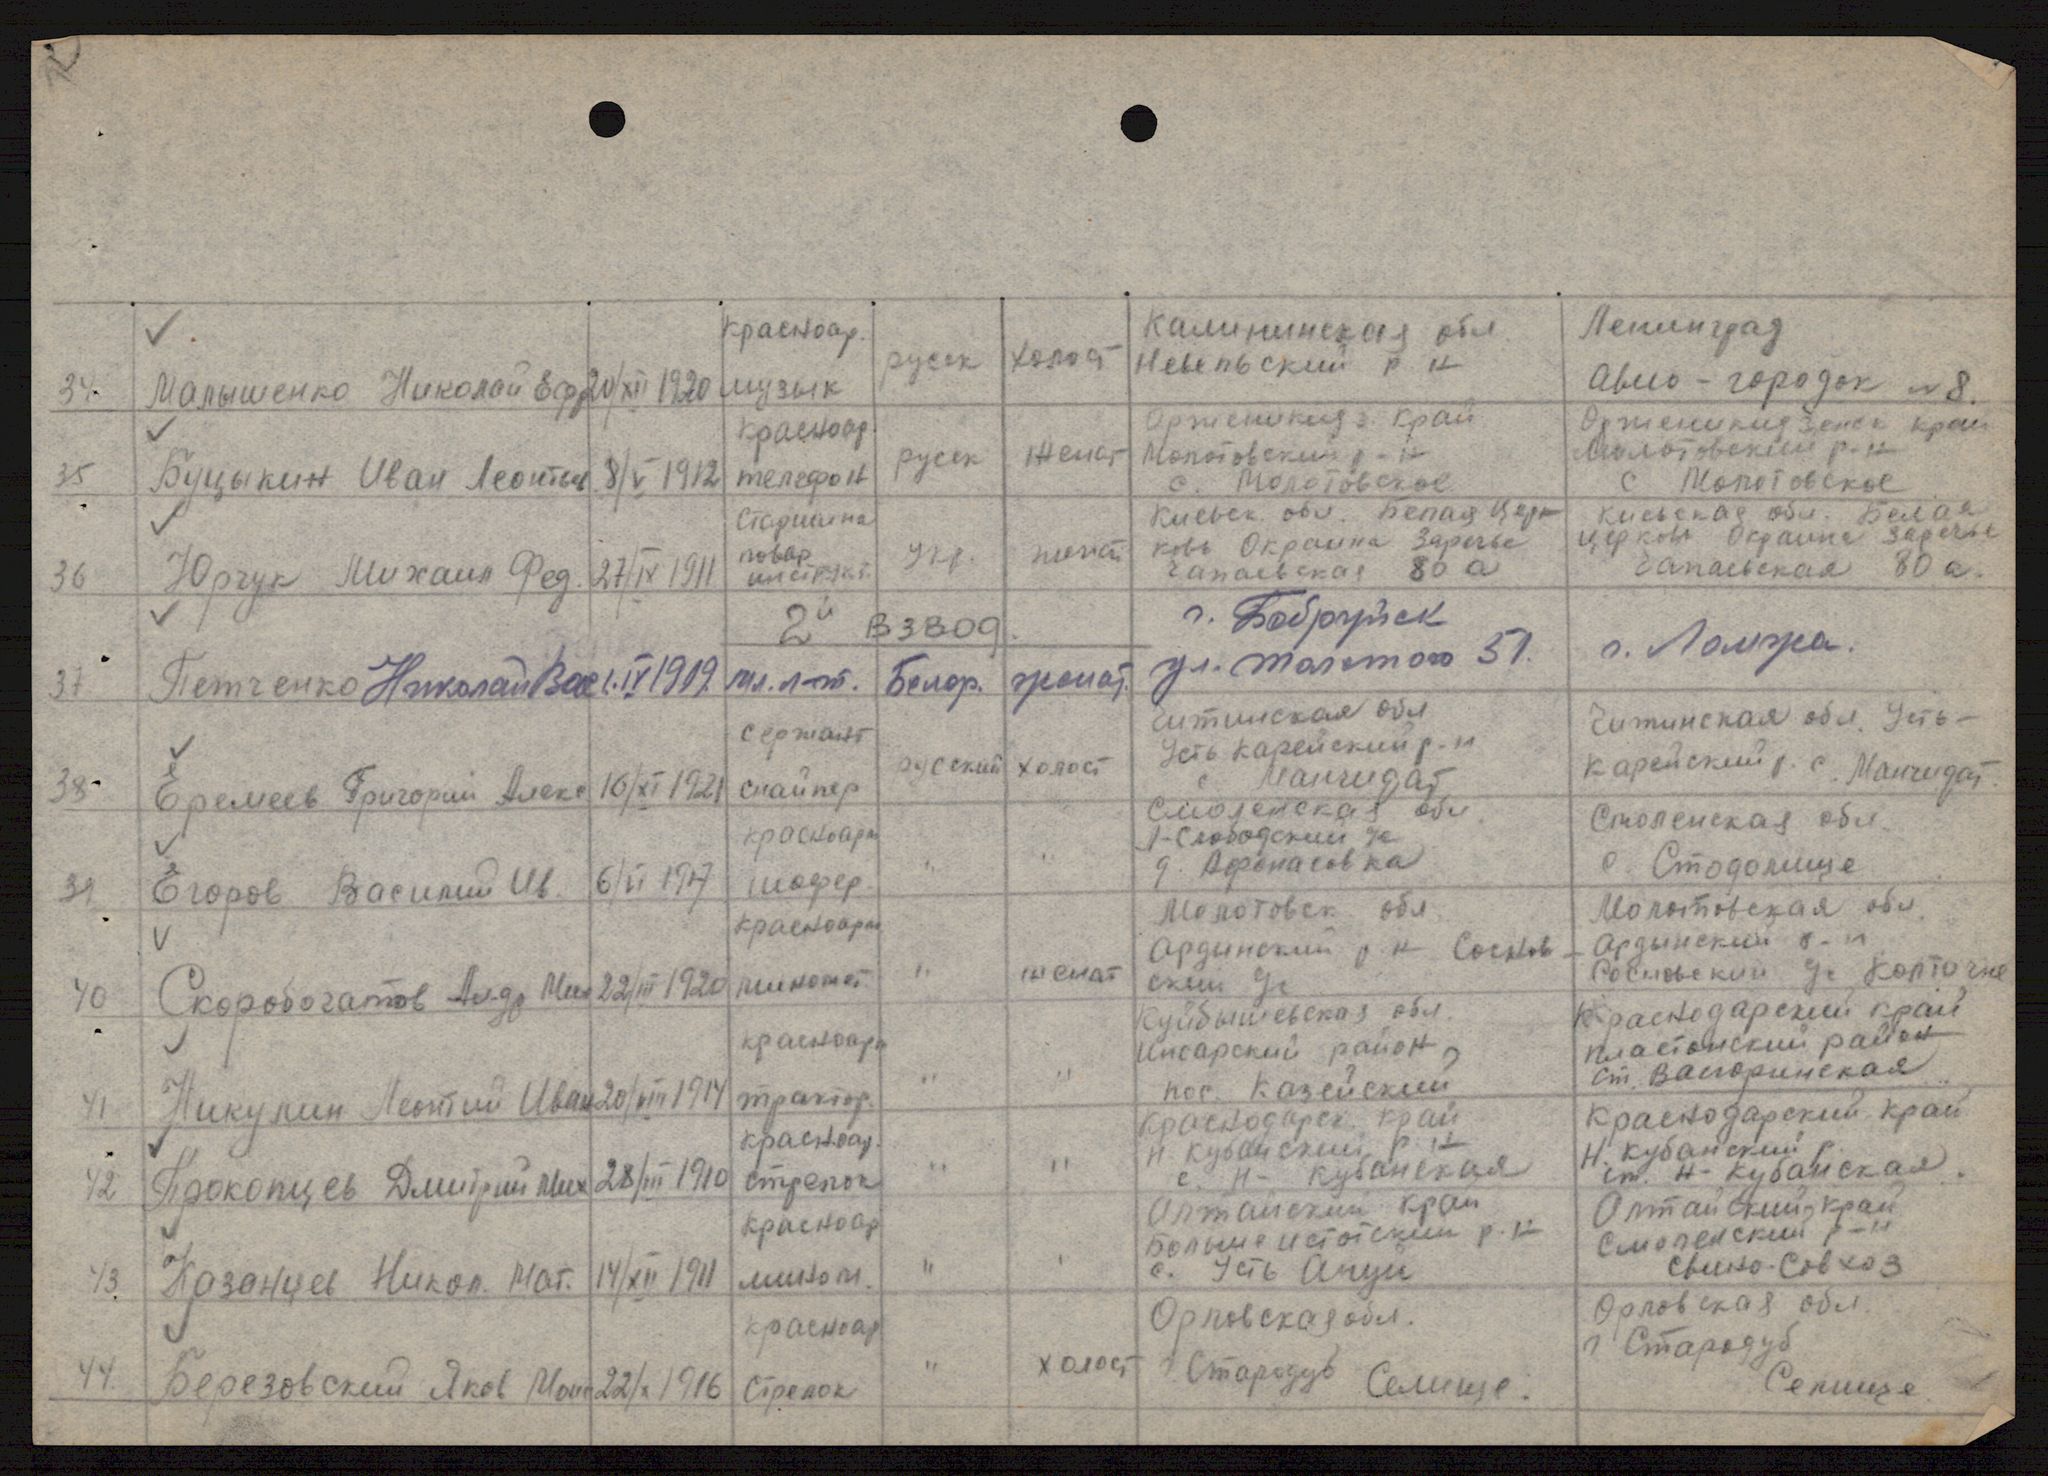 34. Малышенко Николай Ефр 20/XII 1920 красноар. музык русск холост Калининская обл Невельский р-н Ленинград Авио-городок №8.
35 Буцыкин Иван Леонтьев 8/V 1912 красноар. телефон русск женат Орженикидз. край Молотовский р-н с. Молотовское Орженикидзенск край Молотовский р-н с Молотовское
36 Юрчук Михаил Фед. 27/IX 1911 Старшина повар инструкт. укр. женат Киевск. обл. Белая Церковь Окраина Заречье Чапаевская 80 а Киевская обл. Белая церковь Окраина Заречье Чапаевская 80 а.
2й взвод.
37 Петченко Николай Вас 1.IV 1919. мл. л-т. Белор. женат. г. Бобруйск ул. Толстого 51. г. Ломжа.
38 Еремеев Григорий Алекс 16/XI 1921 сержант снайпер русский холост Читинская обл Усть Карейский р-н с Манчидат Читинская обл. Усть-Карейский р. с. Манчидат.
39 Егоров Василий Ив. 6/VI 1917 красноарм шофер. " " Смоленская обл. д. Афонасовка Смоленская обл. с. Стодолище
40 Скоробогатов Алдр Мих 22/III 1920 красноарм миномет. " женат Молотовск обл Ардинский р-н Сосновский Молотовская обл. Ардынский р-н Сосновский
41 Никулин Леонтий Иван 20/VIII 1914 красноарм трактор. " " Куйбышевская обл. Инсарский район, пос. Казейский Краснодарский край Пластонский район ст. Васюринская
42 Прокопцев Дмитрий Мих 28/III 1910 красноар. стрелок " " Краснодарск. край Н. Кубанский р.н с. Н-Кубанская Краснодарский край Н. Кубанский р. ст. Н-Кубанская.
43 Казанцев Никол. Мат. 14/XII 1911 красноар мином. " " Алтайский край Большеистотский р.н с. Усть Ануй Алтайский край Смоленский р-н свино-совхоз
44. Березовский Яков Моис 22/X 1916 красноар стрелок " холост Орловская обл. г Стародуб Селище. Орловская обл. г Стародуб Селище